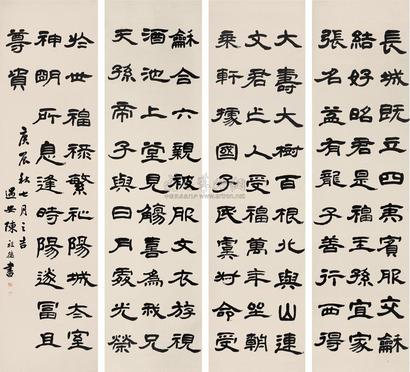 長城既立四夷賓服交龢
結好昭君是福王孫宜家
張名益有龍子善行西得
大壽大樹百根北與山連
文君人受福萬年坐輧
乘軒據國子民虞叔命受
龢合六親被服文衣游視
酒池上堂見觴喜為我兄
天孫帝子與日月處光榮
於世福祿繁祉陽城太室
神明所息逢時陽遂富且
尊貴
庚辰秋七月之吉
陳祖書